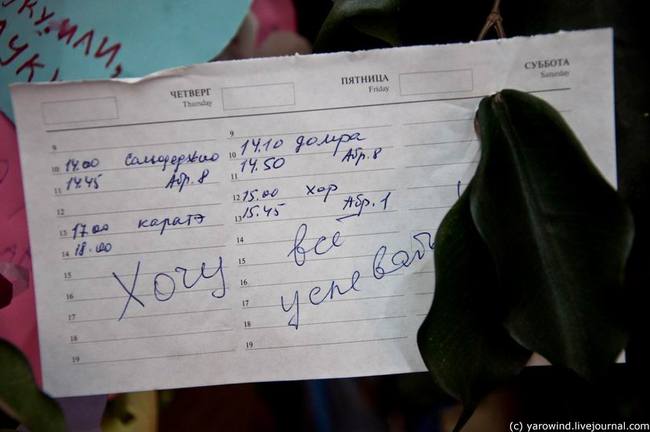 ЧЕТВЕРГ
Thursday
ПЯТНИЦА
Friday
СУББОТА
Saturday
9
10 14.00
11 14.45 Абр. 8
12
13 17.00 каратэ
14 18.00
15
16 Хочу
17
18
19
9
10 14.10 домра
11 14.50 Абр. 8
12 15.00 хор
13 15.45 Абр. 1
14 все
15
16
17 успевать
18
19
(c) yarowind.livejournal.com